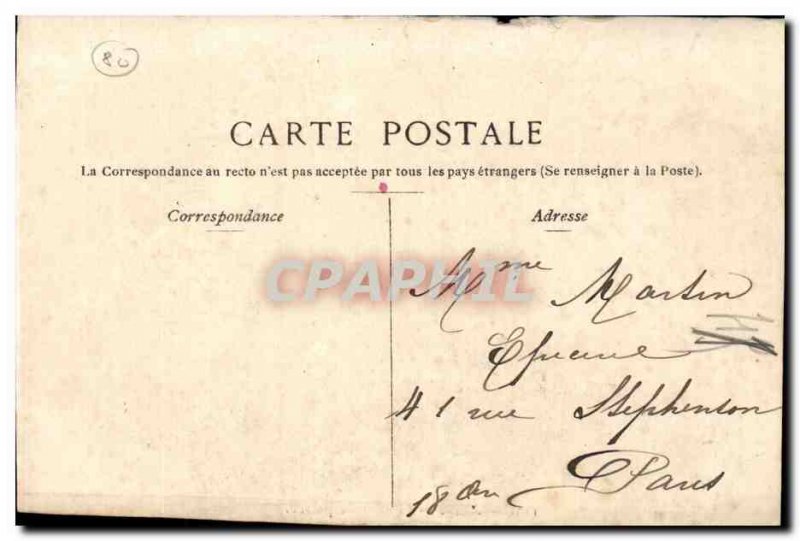 80
CARTE POSTALE
La Correspondance au recto n'est pas acceptée par tous les pays étrangers (Se renseigner à la Poste).
Correspondance
Adresse
CPAPHIL
Mme Martin
41 rue Stephenson
Paris
18em